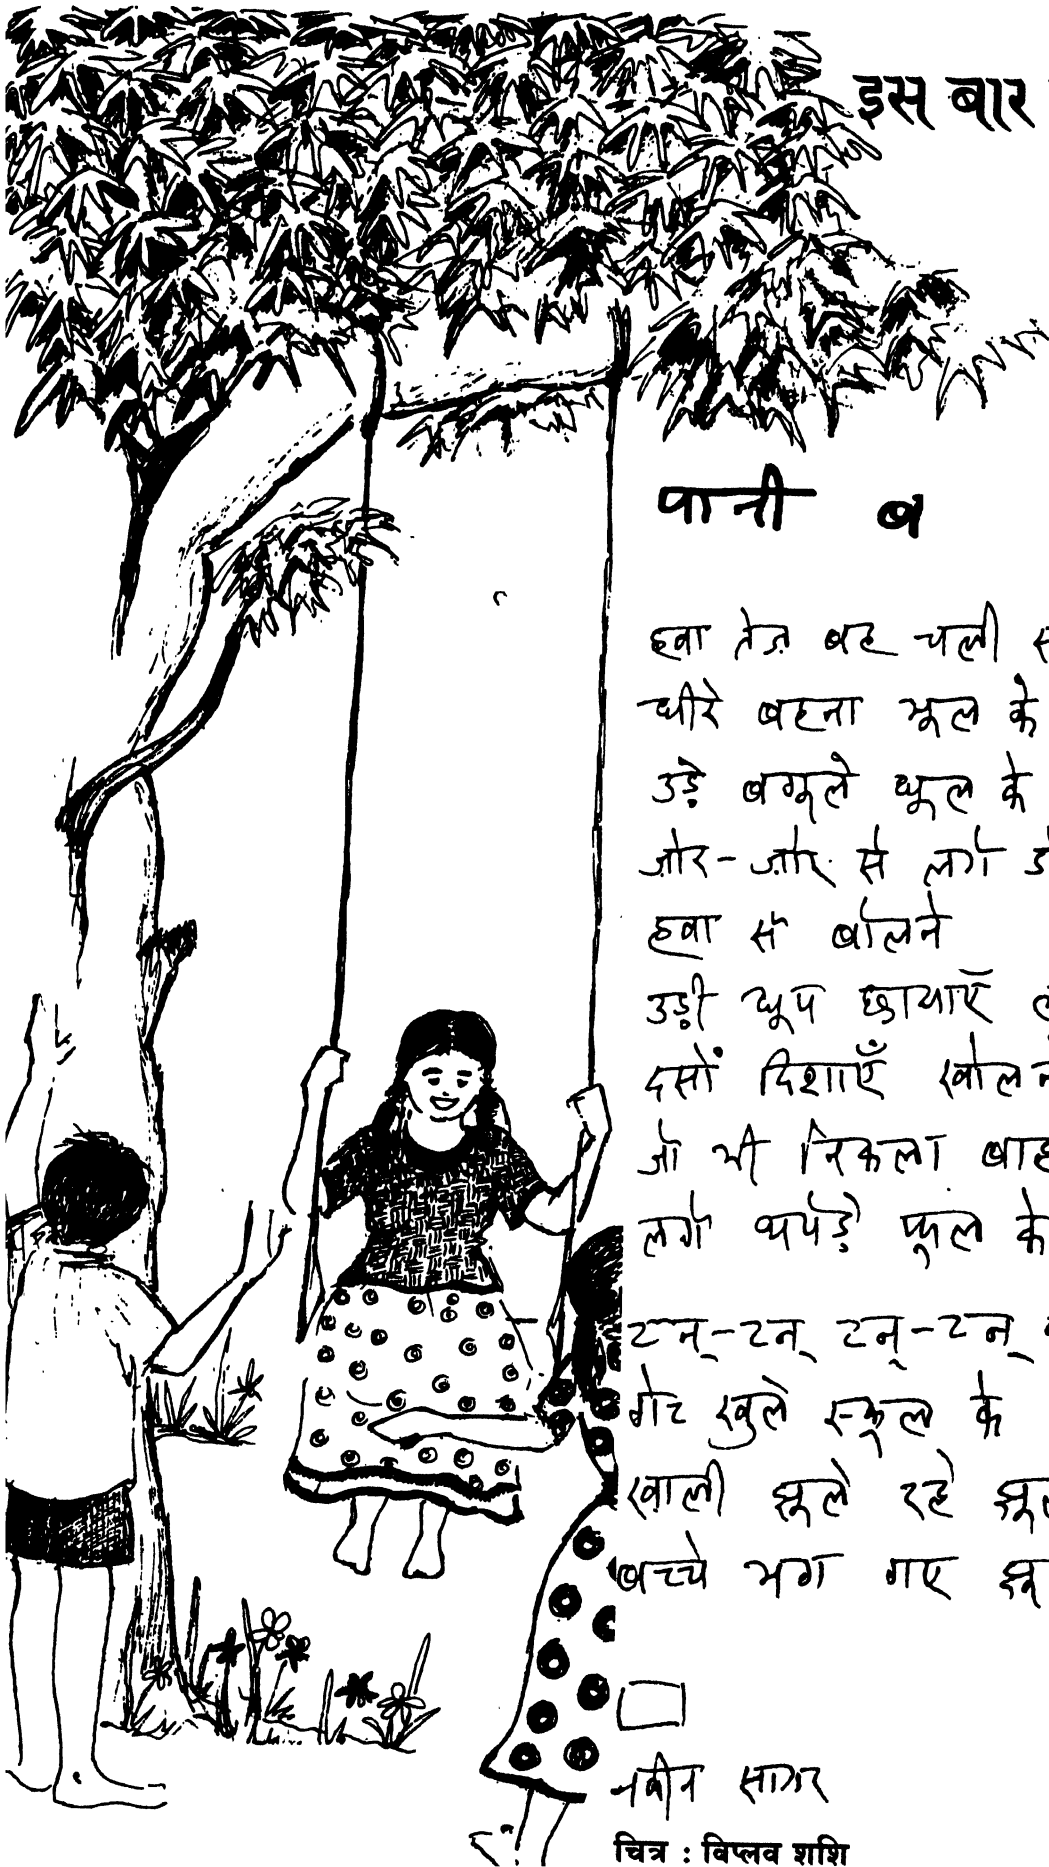 इस बार
पानी ब
हवा तेज़ बह चली
धीरे बहना भूल के
उड़े बगूले धूल के
ज़ोर-ज़ोर से लगे
हवा से बोलने
उड़ी धूप छायाएँ
दसों दिशाएँ खोलने
जो भी निकला बाह
लगे थपेड़े फूल के
टन्-टन् टन्-टन्
गेट खुले स्कूल के
खाली झूले रहे झूल
बच्चे भग गए झू
नवीन सागर
चित्र : विप्लव शशि